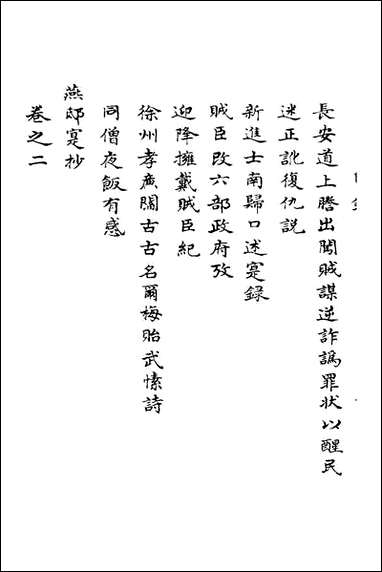 長安道上謄出闖賊謀逆詐譌罪状以醒民
迷正訛復仇説
新進士南歸口述寔録
賊臣改六部政府攷
迎降擁戴賊臣紀
徐州孝廣閻古古名爾梅貽武愫詩
同僧夜飯有感
燕邸寔抄
卷之二